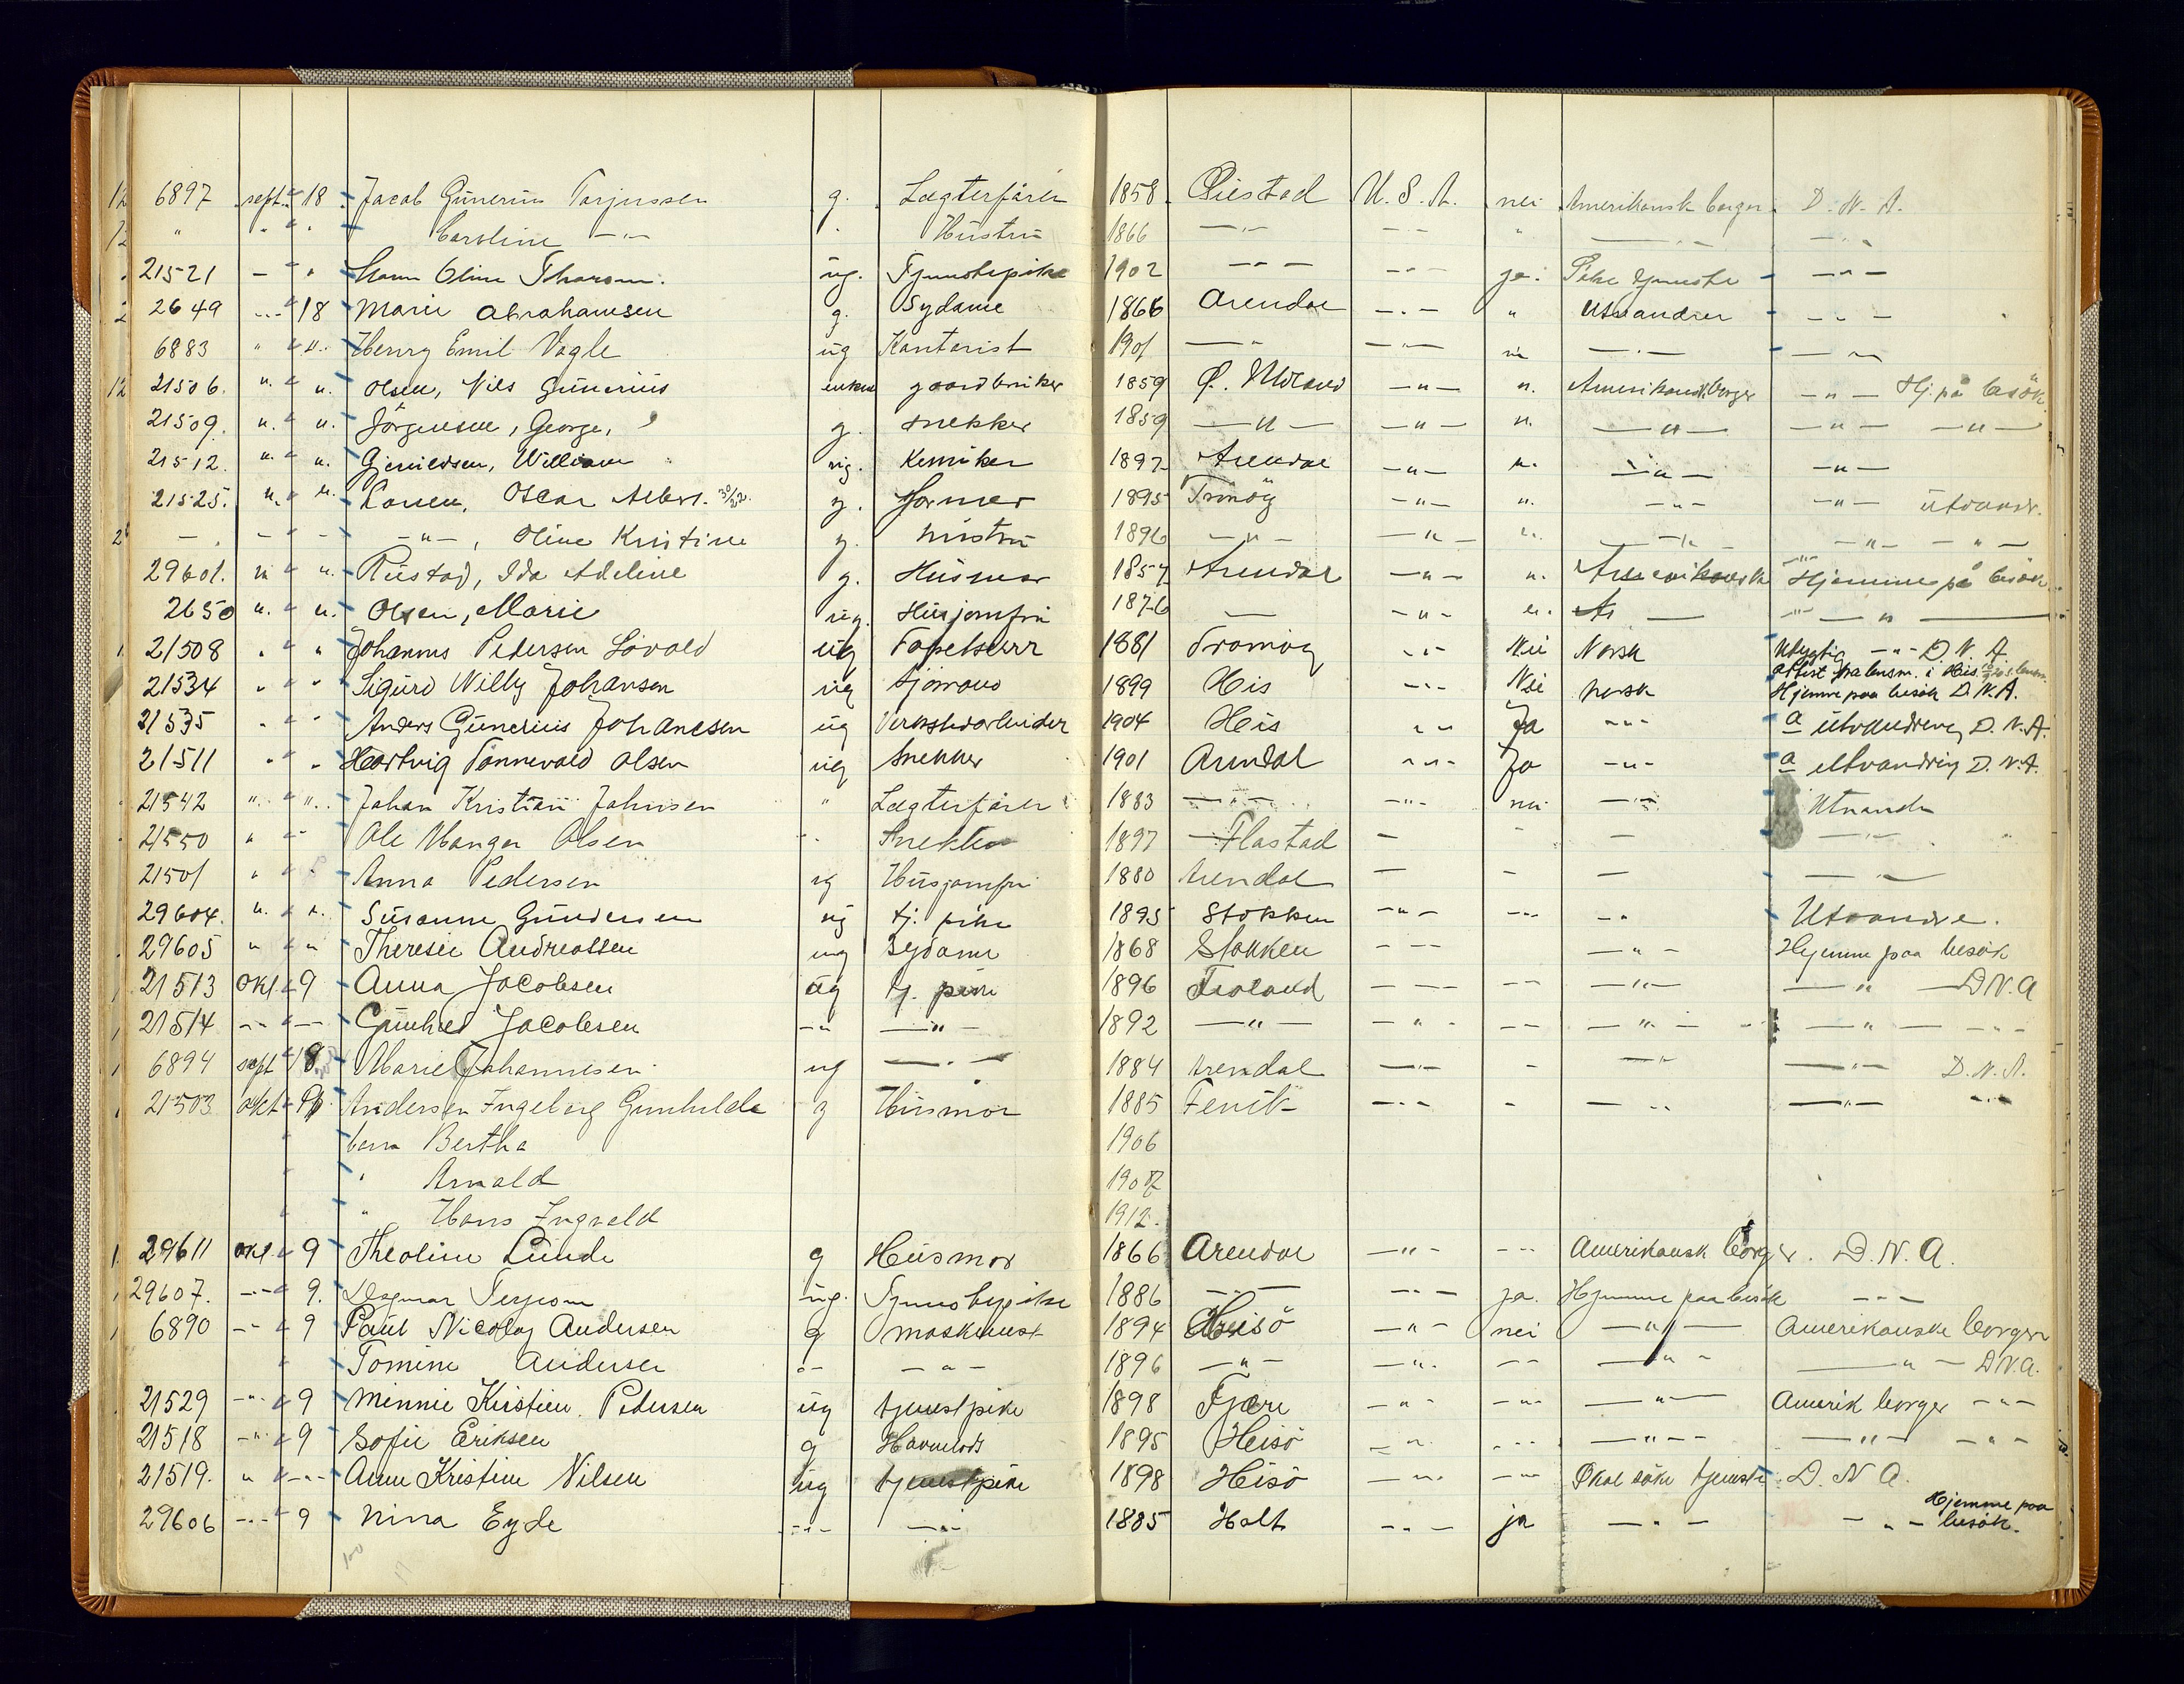 12 6897 sept. " 18 Jacob Gunerius Torjussen g. Lægterfører 1858 Øiestad U. S. A. nei Amerikansk borger D. N. A.
12 " " " " Caroline —"— " Hustru 1866 —"— —"— " —"— —"—
21521 — " " Oline ug. Tjenestepike 1902 —"— —"— ja. —"—
2 2649 —"— " 18 Marie Abrahamsen g. Sydame 1866 Arendal —"— " Utvandrer —"—
6883 " " " Henry Emil Vagle ug Kontorist 1901 —"— —"— nei —"— —"—
12 21506. " " " Olsen, Nils Gunerius enkem gaardbruker 1859 Ø. Moland —"— " Amerikansk borger —"— Hj. på besök.
21509. " " " Jörgensen, George, g. snekker 1859 —"— —"— " —"— —"— —"—
21512. " " " Gjerulldsen, William ug. Kemiker 1892 Arendal —"— " —"— —"—
21525. " " " Larsen, Oscar Albert. 30/22. g. former 1895 Tromöy —"— " —"— —"— utvandr.
2 — — — —"—, Oline Kristine g. hustru 1896 —"— —"— " —"— —"— —"—
29601. " " " Rustad, Ida Adeline g. Husmor 1857 Arendal —"— " Amerikansk Hjemme på besök
2650 " " " Olsen, Marie ug. Husjomfru 1876 — —"— " — —"—
21508 " " Johannes Petersen Lövold ug Tapetserer 1881 Tromöy —"— Nei Norsk Utygtig —"— D. N. A
attest fra lensm. i His
21534 " " Sigurd Willy Johansen ug Sjømand 1899 His —"— Nei norsk Hjemme paa besök D. N. A.
21535 " " Anders Gunerius Johanesen ug Verkstedarbeider 1904 His —"— Ja —"— a utvandring D. N. A.
21511 " " Hartvig Tønnevold Olsen ug Snekker 1901 Arendal —"— Ja —"— a utvandring D. N. A.
21542 " " Johan Kristian Johnsen " Lægterfører 1883 —"— —"— nei —"— Utvandr
21550 " — Ole Manger Olsen " Snekker 1897 Flastad — - — —"—
21501 " " Anna Pedersen ug Husjomfru 1880 Arendal — - — —"—
29604. " " " Susanne Gundersen ug tj. pike 1895 Stokken —"— —"— —"— Utvandre.
29605 " " " Theresie Andreassen ug Sydame 1868 Stokken —"— —"— Hjemme paa besök
21513 Okt. " 9 Anna Jacobsen ug tj. pike 1896 Froland —"— —"— —"— —"— D N. A
21514 —"— " — Gunhild Jacobsen —"— —"— 1892 —"— —"— —"— —"— —"— —"—
6894 sept " 18 Marie Johannesen ug —"— 1884 Arendal —"— - —"— —"— D. N. A.
21503 okt " 9 Andersen Ingeborg Gunhilde g Husmor 1885 Fevik —"— - —"— —"— —"—
" barn Bertha 1906
" " Arnold 1907
" " Hans Ingvald 1912.
29611 Okt. " 9 Theoline Lunde g Husmor 1866 Arendal —"— —"— Amerikansk borger. D. N. A.
29607. —"— 9. Dagmar Terjesen ug. Tjenestepike 1886 —"— —"— ja. Hjemme paa besök —"—
6890 —"— " 9 Paul Nicolay Andersen g maskinist 1894 Heisö —"— nei —"— Amerikanske borger
" Tomine Andersen —"— —"— 1896 —"— —"— —"— —"— —"— D. N. A.
21529 —"— " 9 Minnie Kirstine Pedersen ug tjenestpike 1898 Fjære —"— —"— —"— Amerik borger —"—
21518 —"— " 9 Sofie Eriksen g Havnelods 1895 Heisö —"— —"— —"— —"— —"—
21519. " " —"— Anne Kristine Nilsen ug tjenestpike 1898 Hisö —"— —"— Skal söke tjeneste D. N A.
29606 —"— 9 Nina Eyde —"— —"— 1885 Holt —"— ja —"— —"— Hjemme paa besök.
100